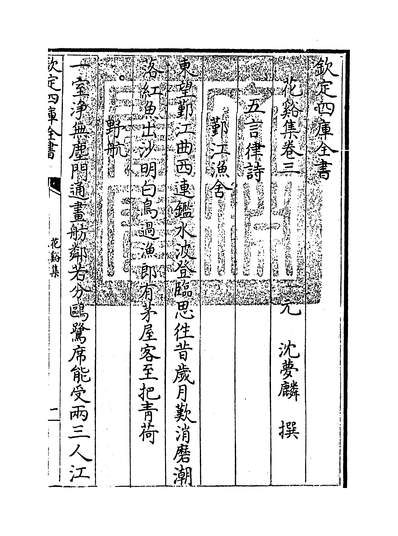 欽定四庫全書
花谿集卷三
元 沈夢麟 撰
五言律詩
鄞江漁舍
東望鄞江曲西連鑑水波登臨思往昔歲月歎消磨潮
落紅魚出沙明白鳥過漁郎有茅屋客至把青荷
野航
一室浄無塵門通畫舫鄰若分鷗鷺席能受兩三人江
欽定四庫全書
花谿集
一